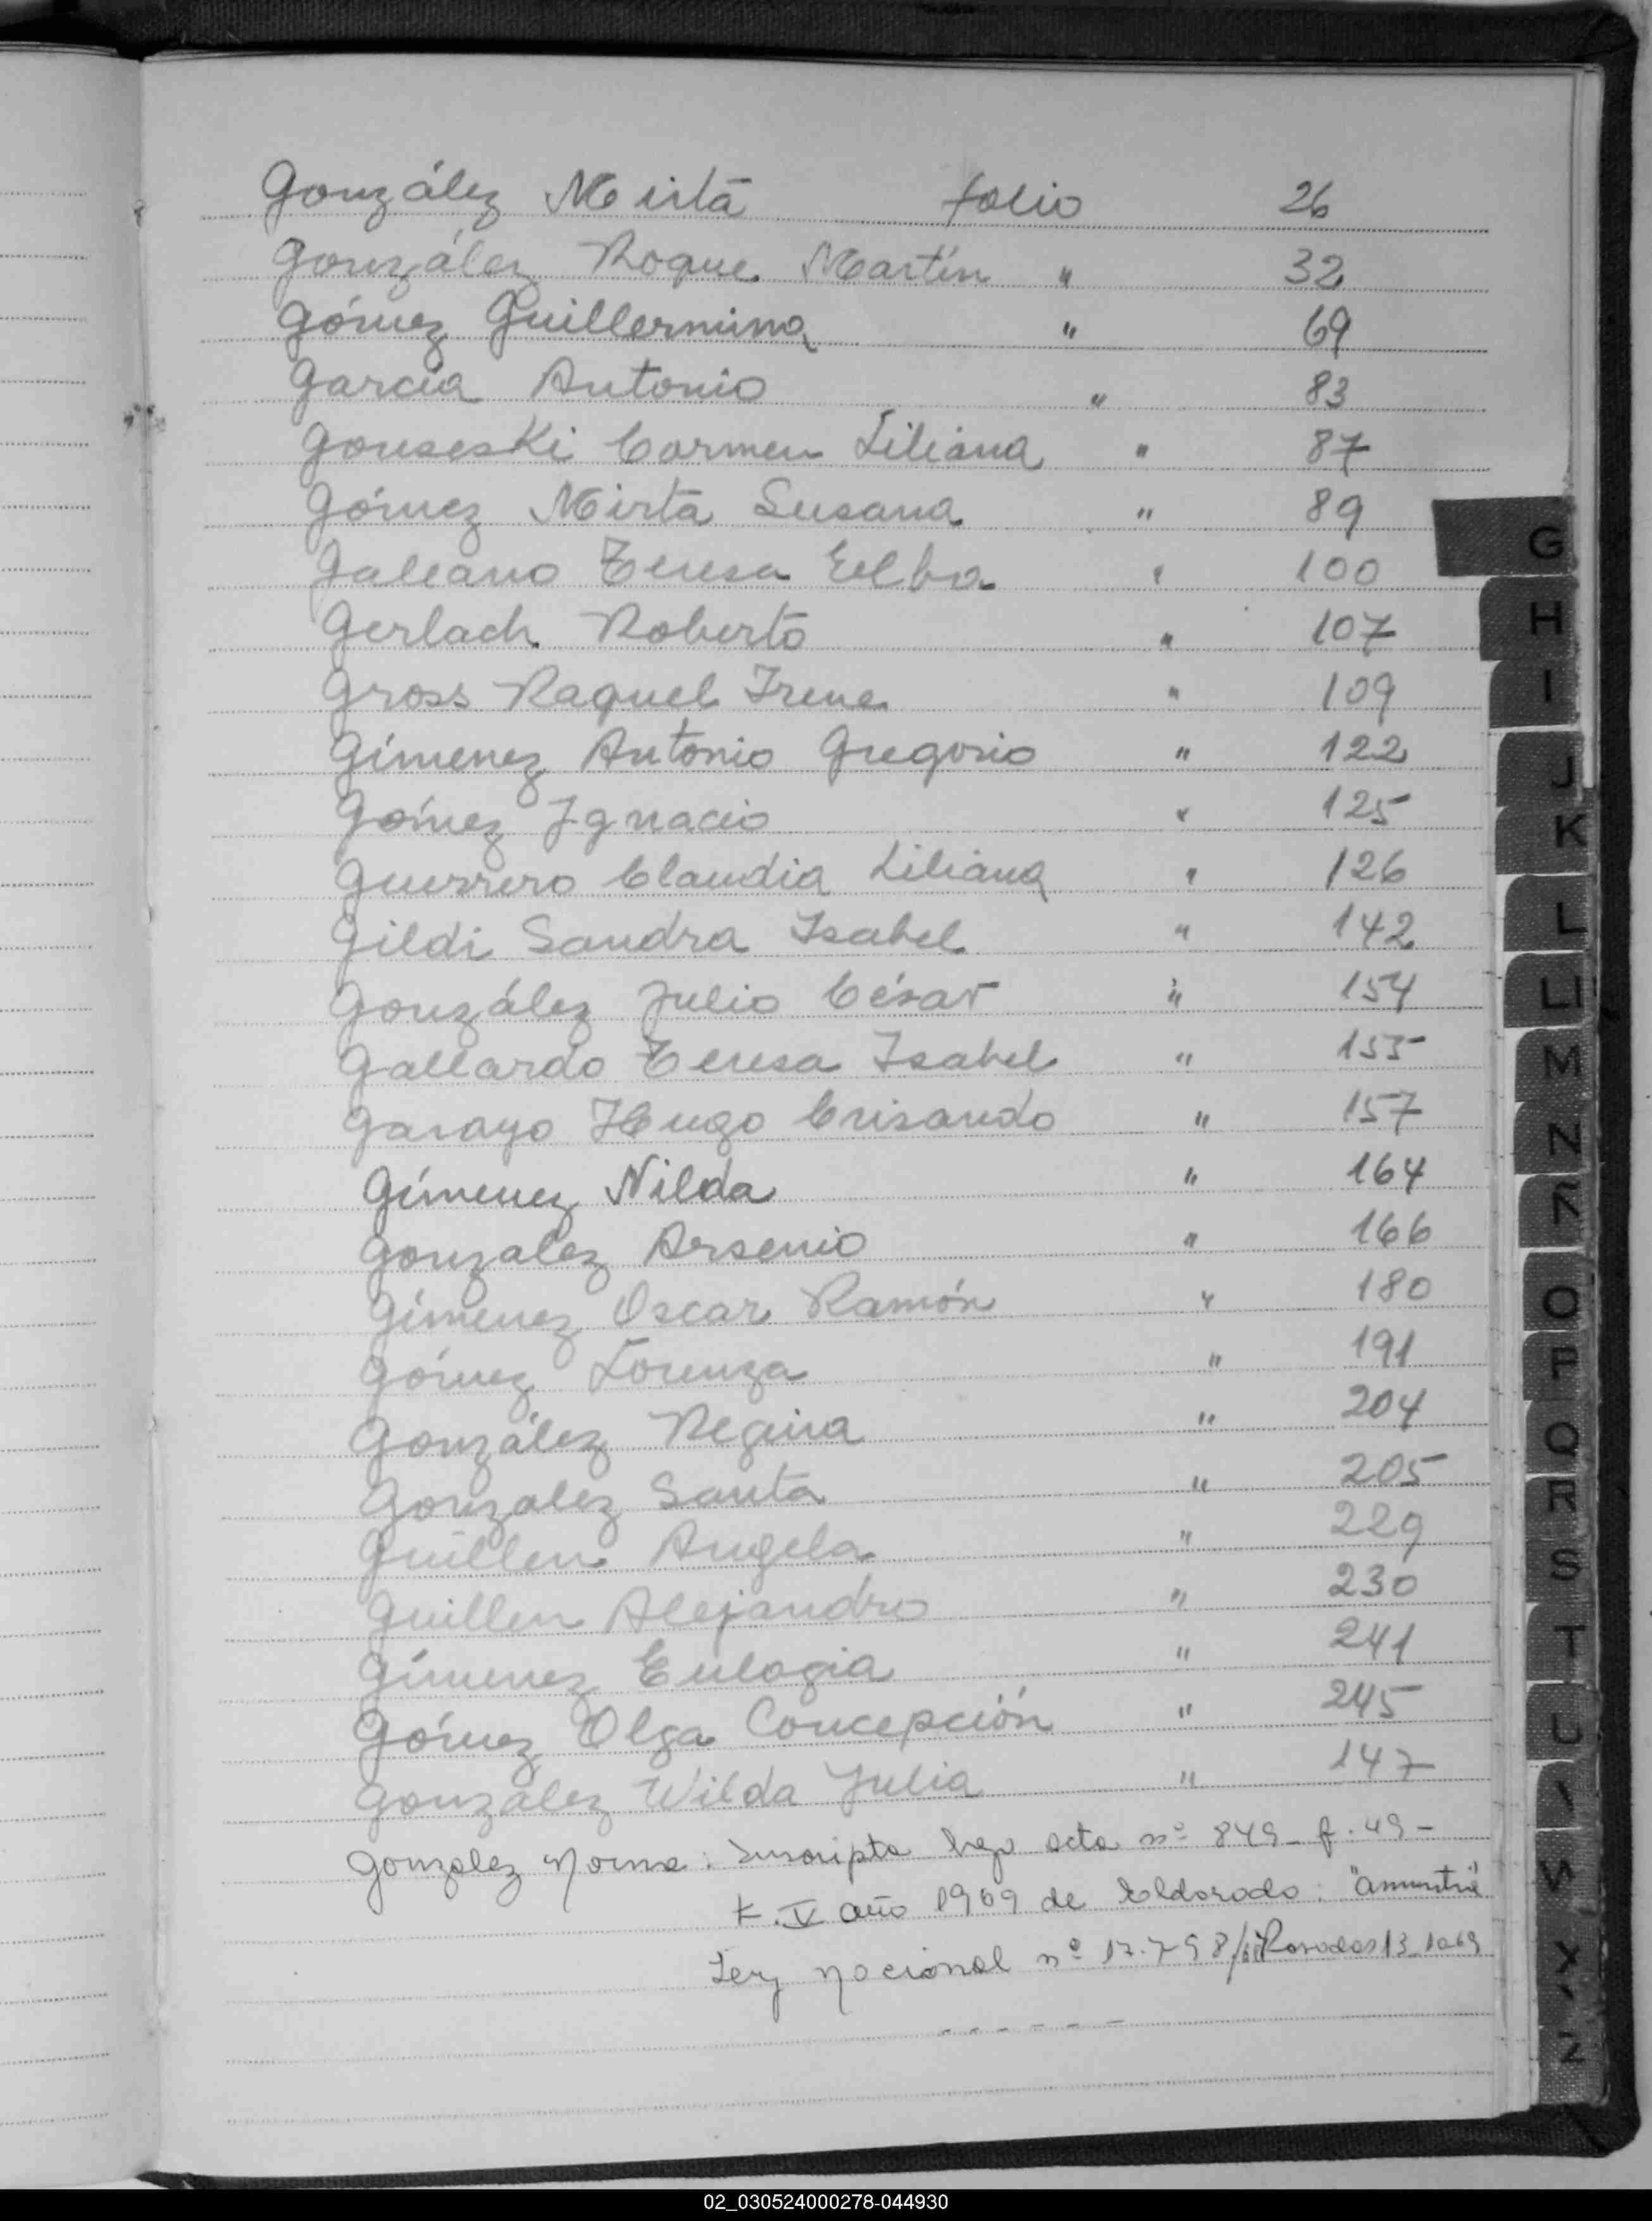 González Mirta folio 26
González Roque Martín " 32
Gómez Guillermina " 69
García Antonio " 83
Gouseski Carmen Liliana " 87
Gómez Mirta Susana " 89
Galeano Teresa Elba " 100
Gerlach Roberto " 107
Gross Raquel Irene " 109
Gímenez Antonio Gregorio " 122
Gómez Ignacio " 125
Guerrero Claudia Liliana " 126
Gildi Sandra Isabel " 142
González Julio César " 154
Gallardo Teresa Isabel " 155
Garayo Hugo Crisando " 157
Gímenez Nilda " 164
Gonzalez Arsenio " 166
Gímenez Oscar Ramón " 180
Gómez Lorenza " 191
González Regina " 204
Gonzalez Santa " 205
Guillen Angela " 229
Guillen Alejandro " 230
Gímenez Eulogia " 241
Gómez Olga Concepción " 245
González Wilda Julia " 147
Gonzalez Norma: Inscripta bajo acta nº 849 - f. 49 -
t. V año 1969 de Eldorado. "Amnistía"
Ley Nacional nº 17.798/ Posadas 13-10-69
- - - - - -
G
H
I
J
K
L
Ll
M
N
Ñ
O
P
Q
R
S
T
U
X
Z
02_030524000278-044930